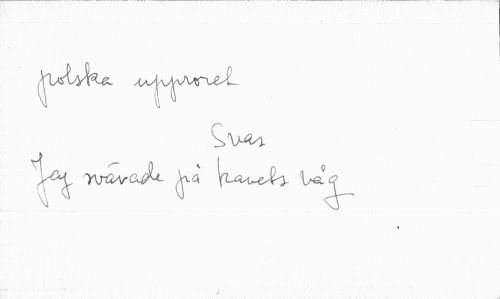 polska upproret
Svas
Jag svävade på havets våg